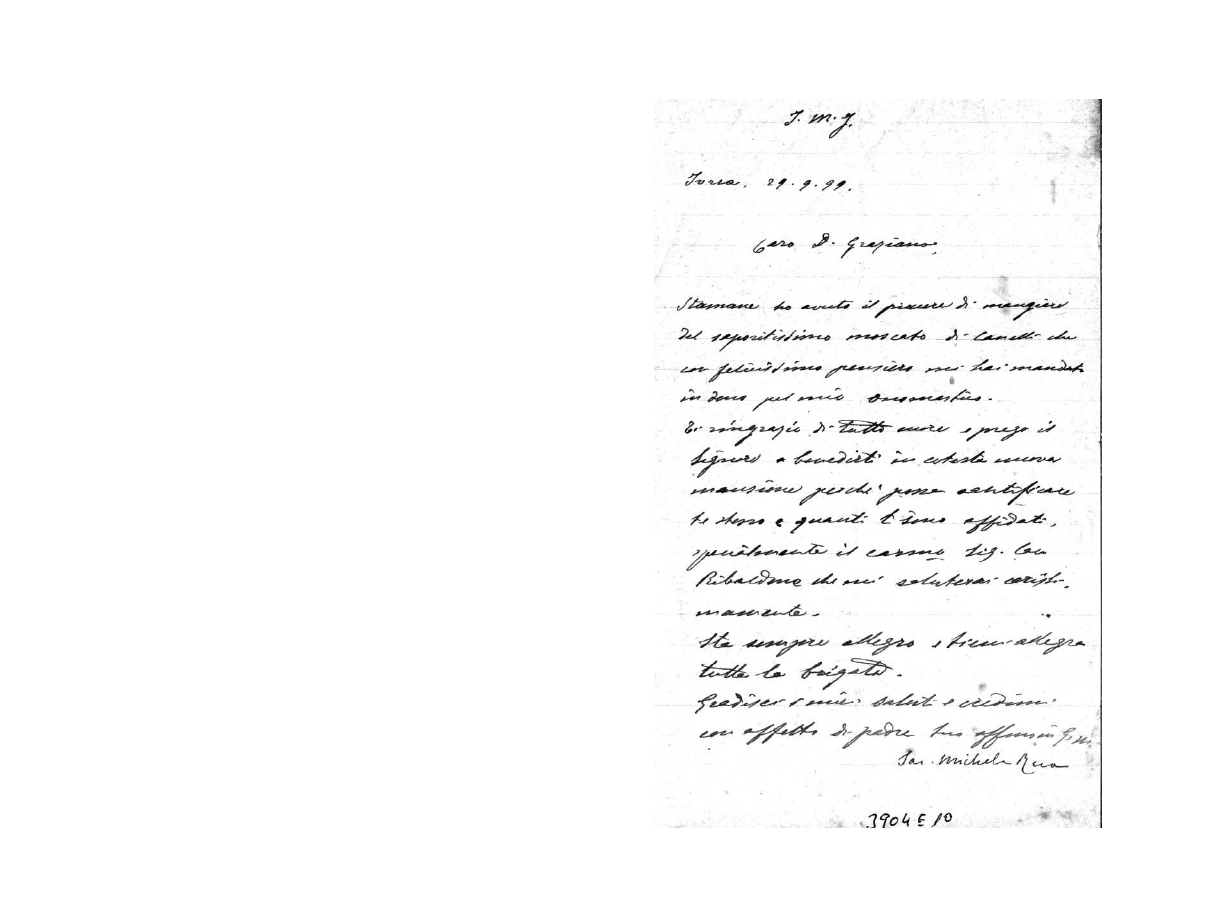 J. M. J.
Ivrea, 29.9.99.
Caro D. Graziano,
Stamane ho avuto il piacere di mangiare
del saporitissimo moscato di Canelli che
con felicissimo pensiero mi hai mandato
in dono pel mio onomastico.
Ti ringrazio di tutto cuore e prego il
Signore a benedirti in cotesta nuova
mansione perchè possa santificare
te stesso e quanti ti sono affidati,
specialmente il carsmo Sig. Can
Ribaldone che mi saluterai caris-
mamente.
Sta sempre allegro e tieni allegra
tutta la brigata.
Gradisci i miei saluti e credimi
con affetto di padre tuo in G. M.
Sac. Michele Rua
3904 E 10